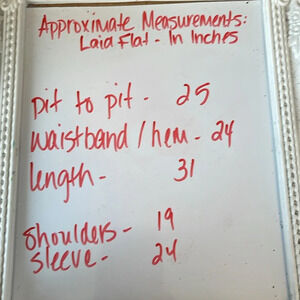 Approximate Measurements:
Laid Flat - In Inches
pit to pit - 25
waistband/hem - 24
length - 31
Shoulders - 19
Sleeve - 24